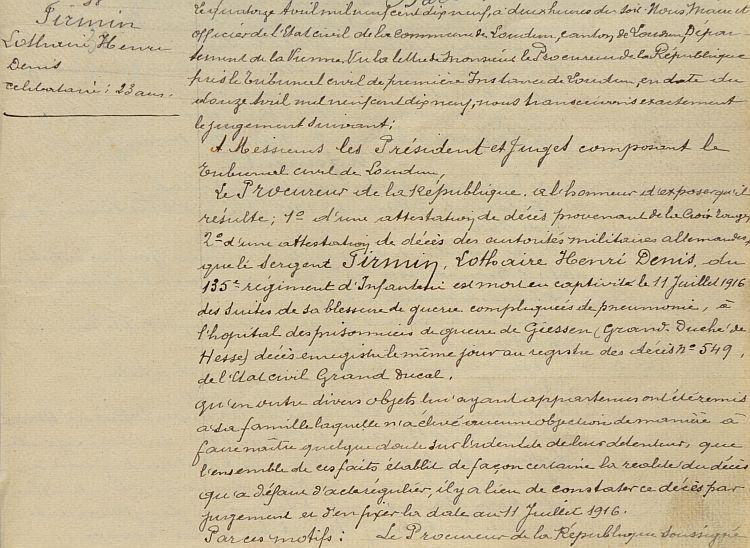 Firmin
Lothaire Henri
Denis
célibataire : 23 ans.
Le quatorze Avril mil neuf cent dix neuf, à deux heures du soir Nous, Maire et
officier de l'Etat civil de la Commune de Loudun, canton de Loudun, Dépar-
tement de la Vienne. Vu la lettre de Monsieur le Procureur de la République
près le Tribunal civil de première Instance de Loudun, en date du
douze Avril mil neuf cent dix neuf, nous transcrivons exactement
le jugement suivant;
A Messieurs les Président et Juges composant le
Tribunal civil de Loudun,
Le Procureur de la République. a l'honneur d'exposer qu'il
résulte; 1° d'une attestation de décès provenant de la Croix Rouge,
2° d'une attestation de décès des autorités militaires allemandes,
que le Sergent Firmin, Lothaire Henri Denis, du
135e régiment d'Infanterie est mort en captivité le 11 Juillet 1916
des suites de sa blessure de guerre compliquées de pneumonie, à
l'hopital des prisonniers de guerre de Giessen (Grand. Duché de
Hesse) décès enregistré le même jour au registre des décès n° 549,
de l'Etat civil Grand Ducal.
qu'en outre divers objets lui ayant appartenus ont été remis
à sa famille laquelle n'a élevé aucune objection de manière à
faire naître quelque doute sur l'identité de leur détenteur, que
l'ensemble de ces faits établit de façon certaine la réalité du décès
qu'à défaut d'acte régulier, il y a lieu de constater ce décès par
jugement et d'en fixer la date au 11 Juillet 1916.
Par ces motifs : Le Procureur de la République soussigné